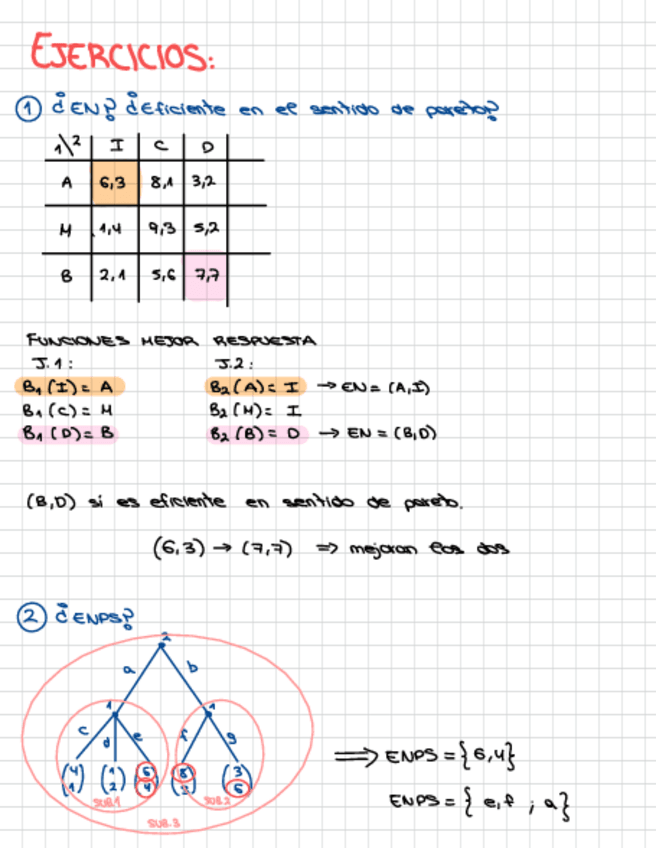 EJERCICIOS:
① ¿EN? ¿Eficiente en el sentido de pareto?
1\2 I C D
A 6,3 8,1 3,2
M 1,4 9,3 5,2
B 2,1 5,6 7,7
FUNCIONES MEJOR RESPUESTA
J.1: J.2:
B₁(I) = A B₂(A) = I → EN = (A,I)
B₁(C) = M B₂(M) = I
B₁(D) = B B₂(B) = D → EN = (B,D)
(B,D) si es eficiente en sentido de pareto.
(6,3) → (7,7) => mejoran los dos
② ¿ENPS?
2
a b
1 1
c d e f g
(4 1) (1 2) (6 4) (8 2) (3 6)
SUB.1 SUB.2
SUB.3
=> ENPS = {6,4}
ENPS = { e,f ; a}